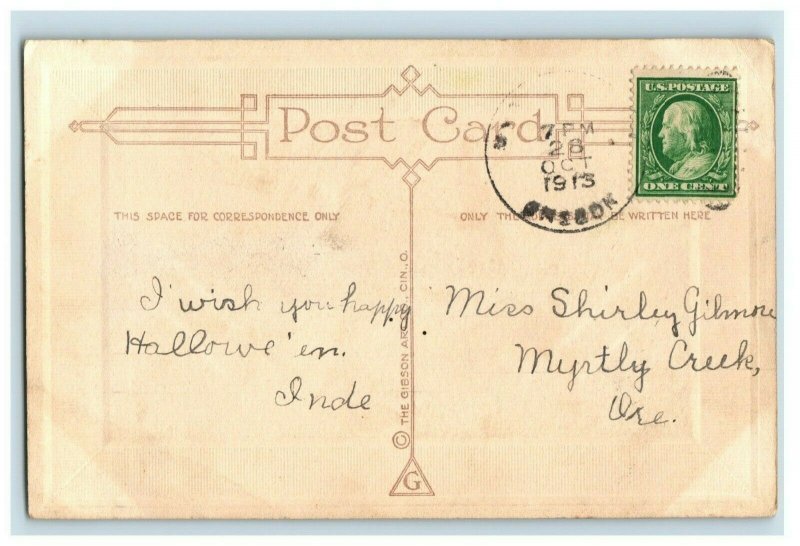 Post Card
U.S. POSTAGE
ONE CENT
7 PM
28
OCT
1913
THIS SPACE FOR CORRESPONDENCE ONLY
ONLY THE BE WRITTEN HERE
I wish you happy
Hallowe'en.
Inde
Miss Shirley Gilmore
Myrtly Creek,
Ore.
© THE GIBSON ART CO., CIN., O.
G